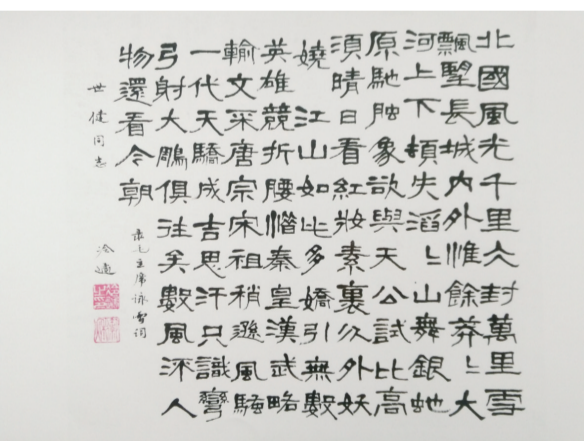 北國風光千里仌封萬里雪
飄朢長城內外惟餘莽〻大
河上下頓失滔〻山舞銀蛇
原馳象欲與天公試比高
須晴日看紅妝素裹分外妖
嬈 江山如此多嬌引無數
英雄競折腰惜秦皇漢武略
輸文采唐宗宋祖稍遜風騷
一代天驕成吉思汗只識彎
弓射大鵰俱往矣數風流人
物還看今朝
录毛主席詠雪詞
世健同志
冷遹